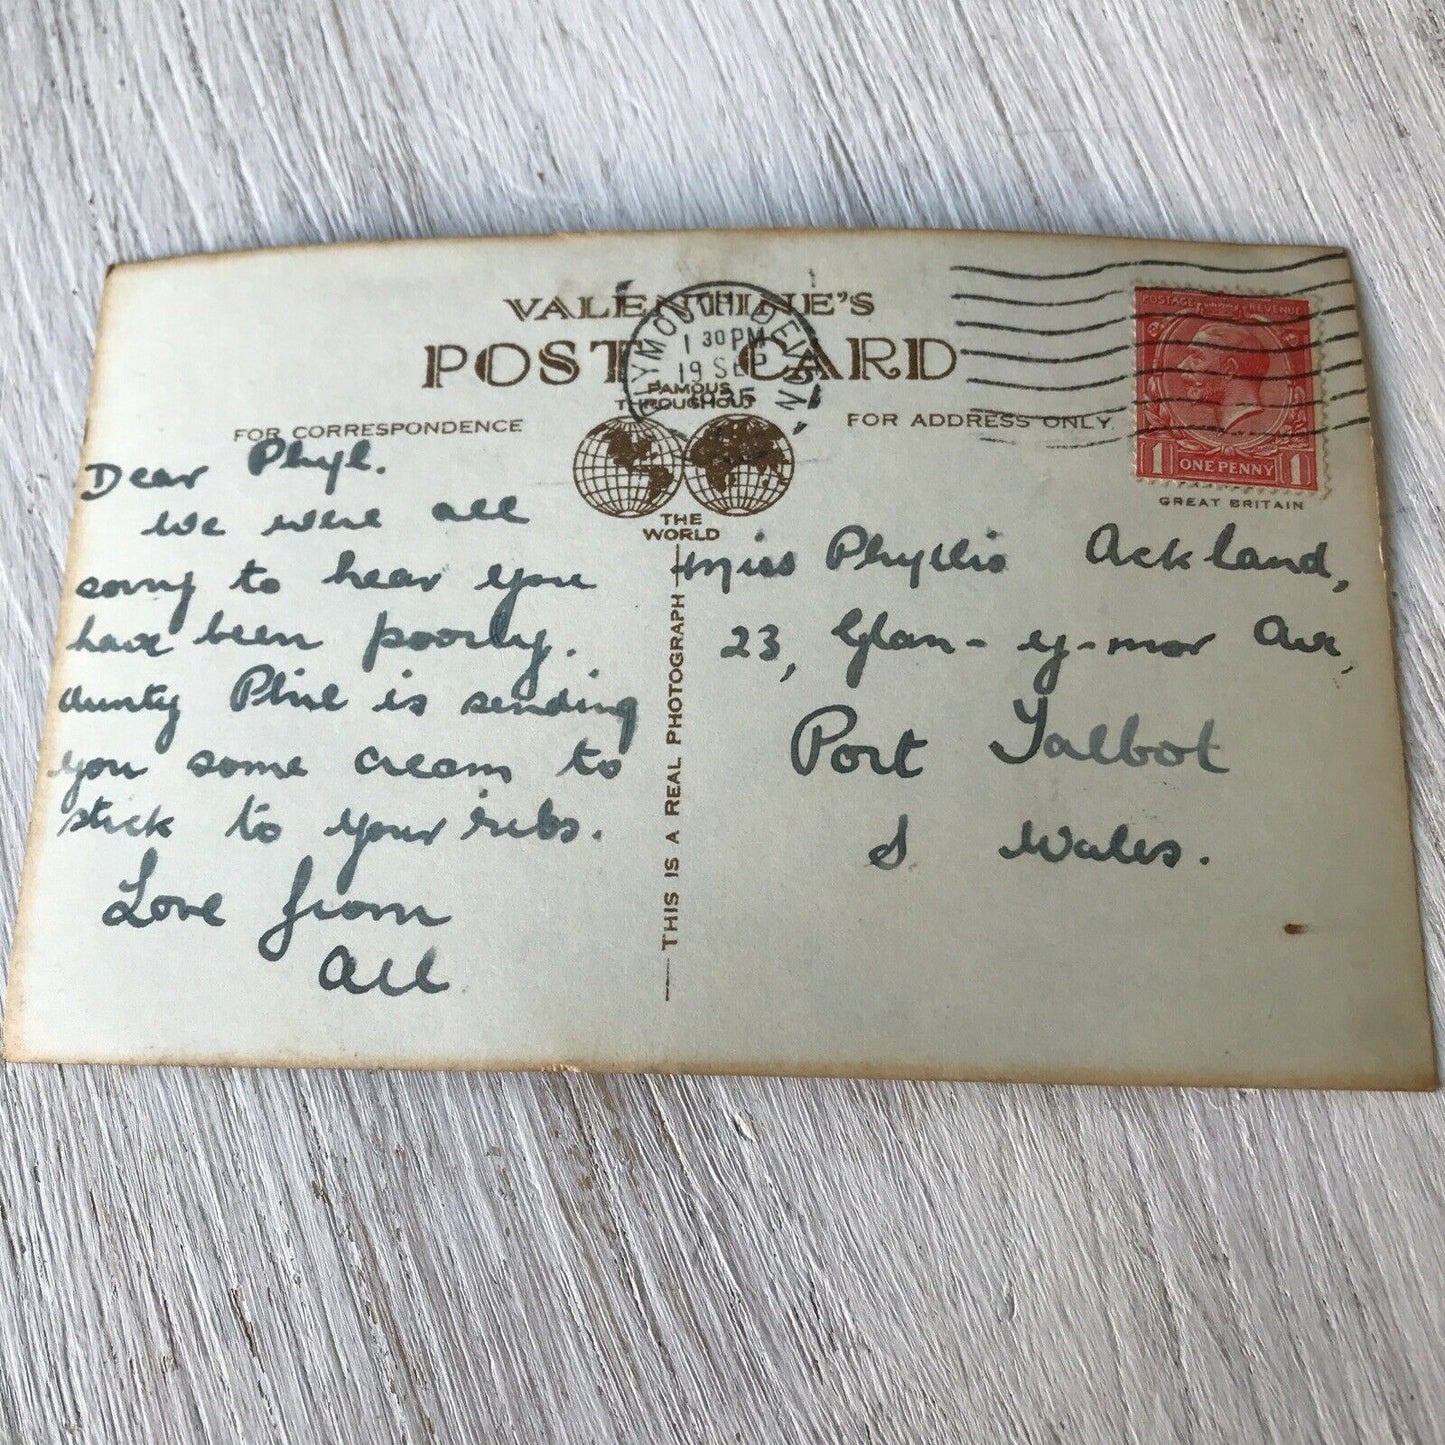 VALENTINE'S
POST CARD
FAMOUS
THROUGHOUT
THE
WORLD
FOR CORRESPONDENCE
FOR ADDRESS ONLY
PLYMOUTH DEVON
1 30 PM
19 SEP
POSTAGE REVENUE
1 ONE PENNY 1
GREAT BRITAIN
THIS IS A REAL PHOTOGRAPH
Dear Phyl.
We were all
sorry to hear you
have been poorly.
Aunty is sending
you some cream to
stick to your ribs.
Love from
All
Miss Phyllis Ackland,
23, Glan-y-mor Ave,
Port Talbot
S Wales.